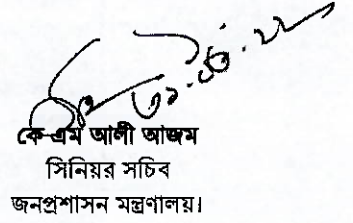 কে এম আলী আজম
সিনিয়র সচিব
জনপ্রশাসন মন্ত্রণালয়।